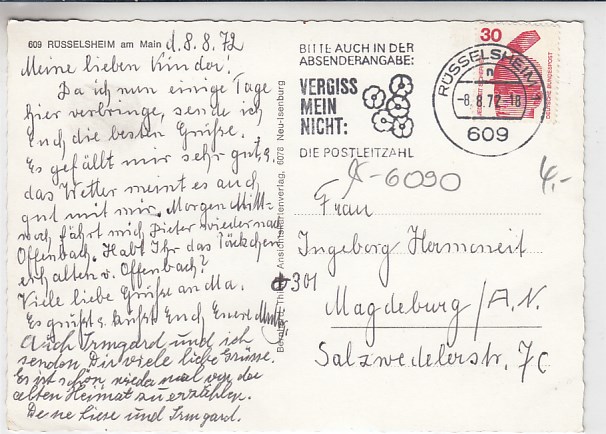 609 RÜSSELSHEIM am Main d. 8.8.72
Meine lieben Kinder!
Da ich nun einige Tage
hier verbringe, sende ich
Euch die besten Grüße.
Es gefällt mir sehr gut,
das Wetter meint es auch
gut mit mir. Morgen Mitt-
woch fährt mich Dieter wieder nach
Offenbach. Habt Ihr das Päckchen
erhalten v. Offenbach?
Viele liebe Grüße an Ma.
Es grüßt u. küßt Euch Eure Mutti
Auch Irmgard und ich
senden Dir viele liebe Grüsse.
Es ist schön wieder mal von der
alten Heimat zu erzählen.
Deine Liese und Irmgard.
Ansichtskartenverlag, 6078 Neu-Isenburg
BITTE AUCH IN DER
ABSENDERANGABE:
VERGISS
MEIN
NICHT:
DIE POSTLEITZAHL
RÜSSELSHEIM
n
-8.8.72-18
609
30
DEUTSCHE BUNDESPOST
X-6090
4,-
Frau
Ingeborg Hermoneit
301
Magdeburg/A.N.
Salzwedelerstr. 7c